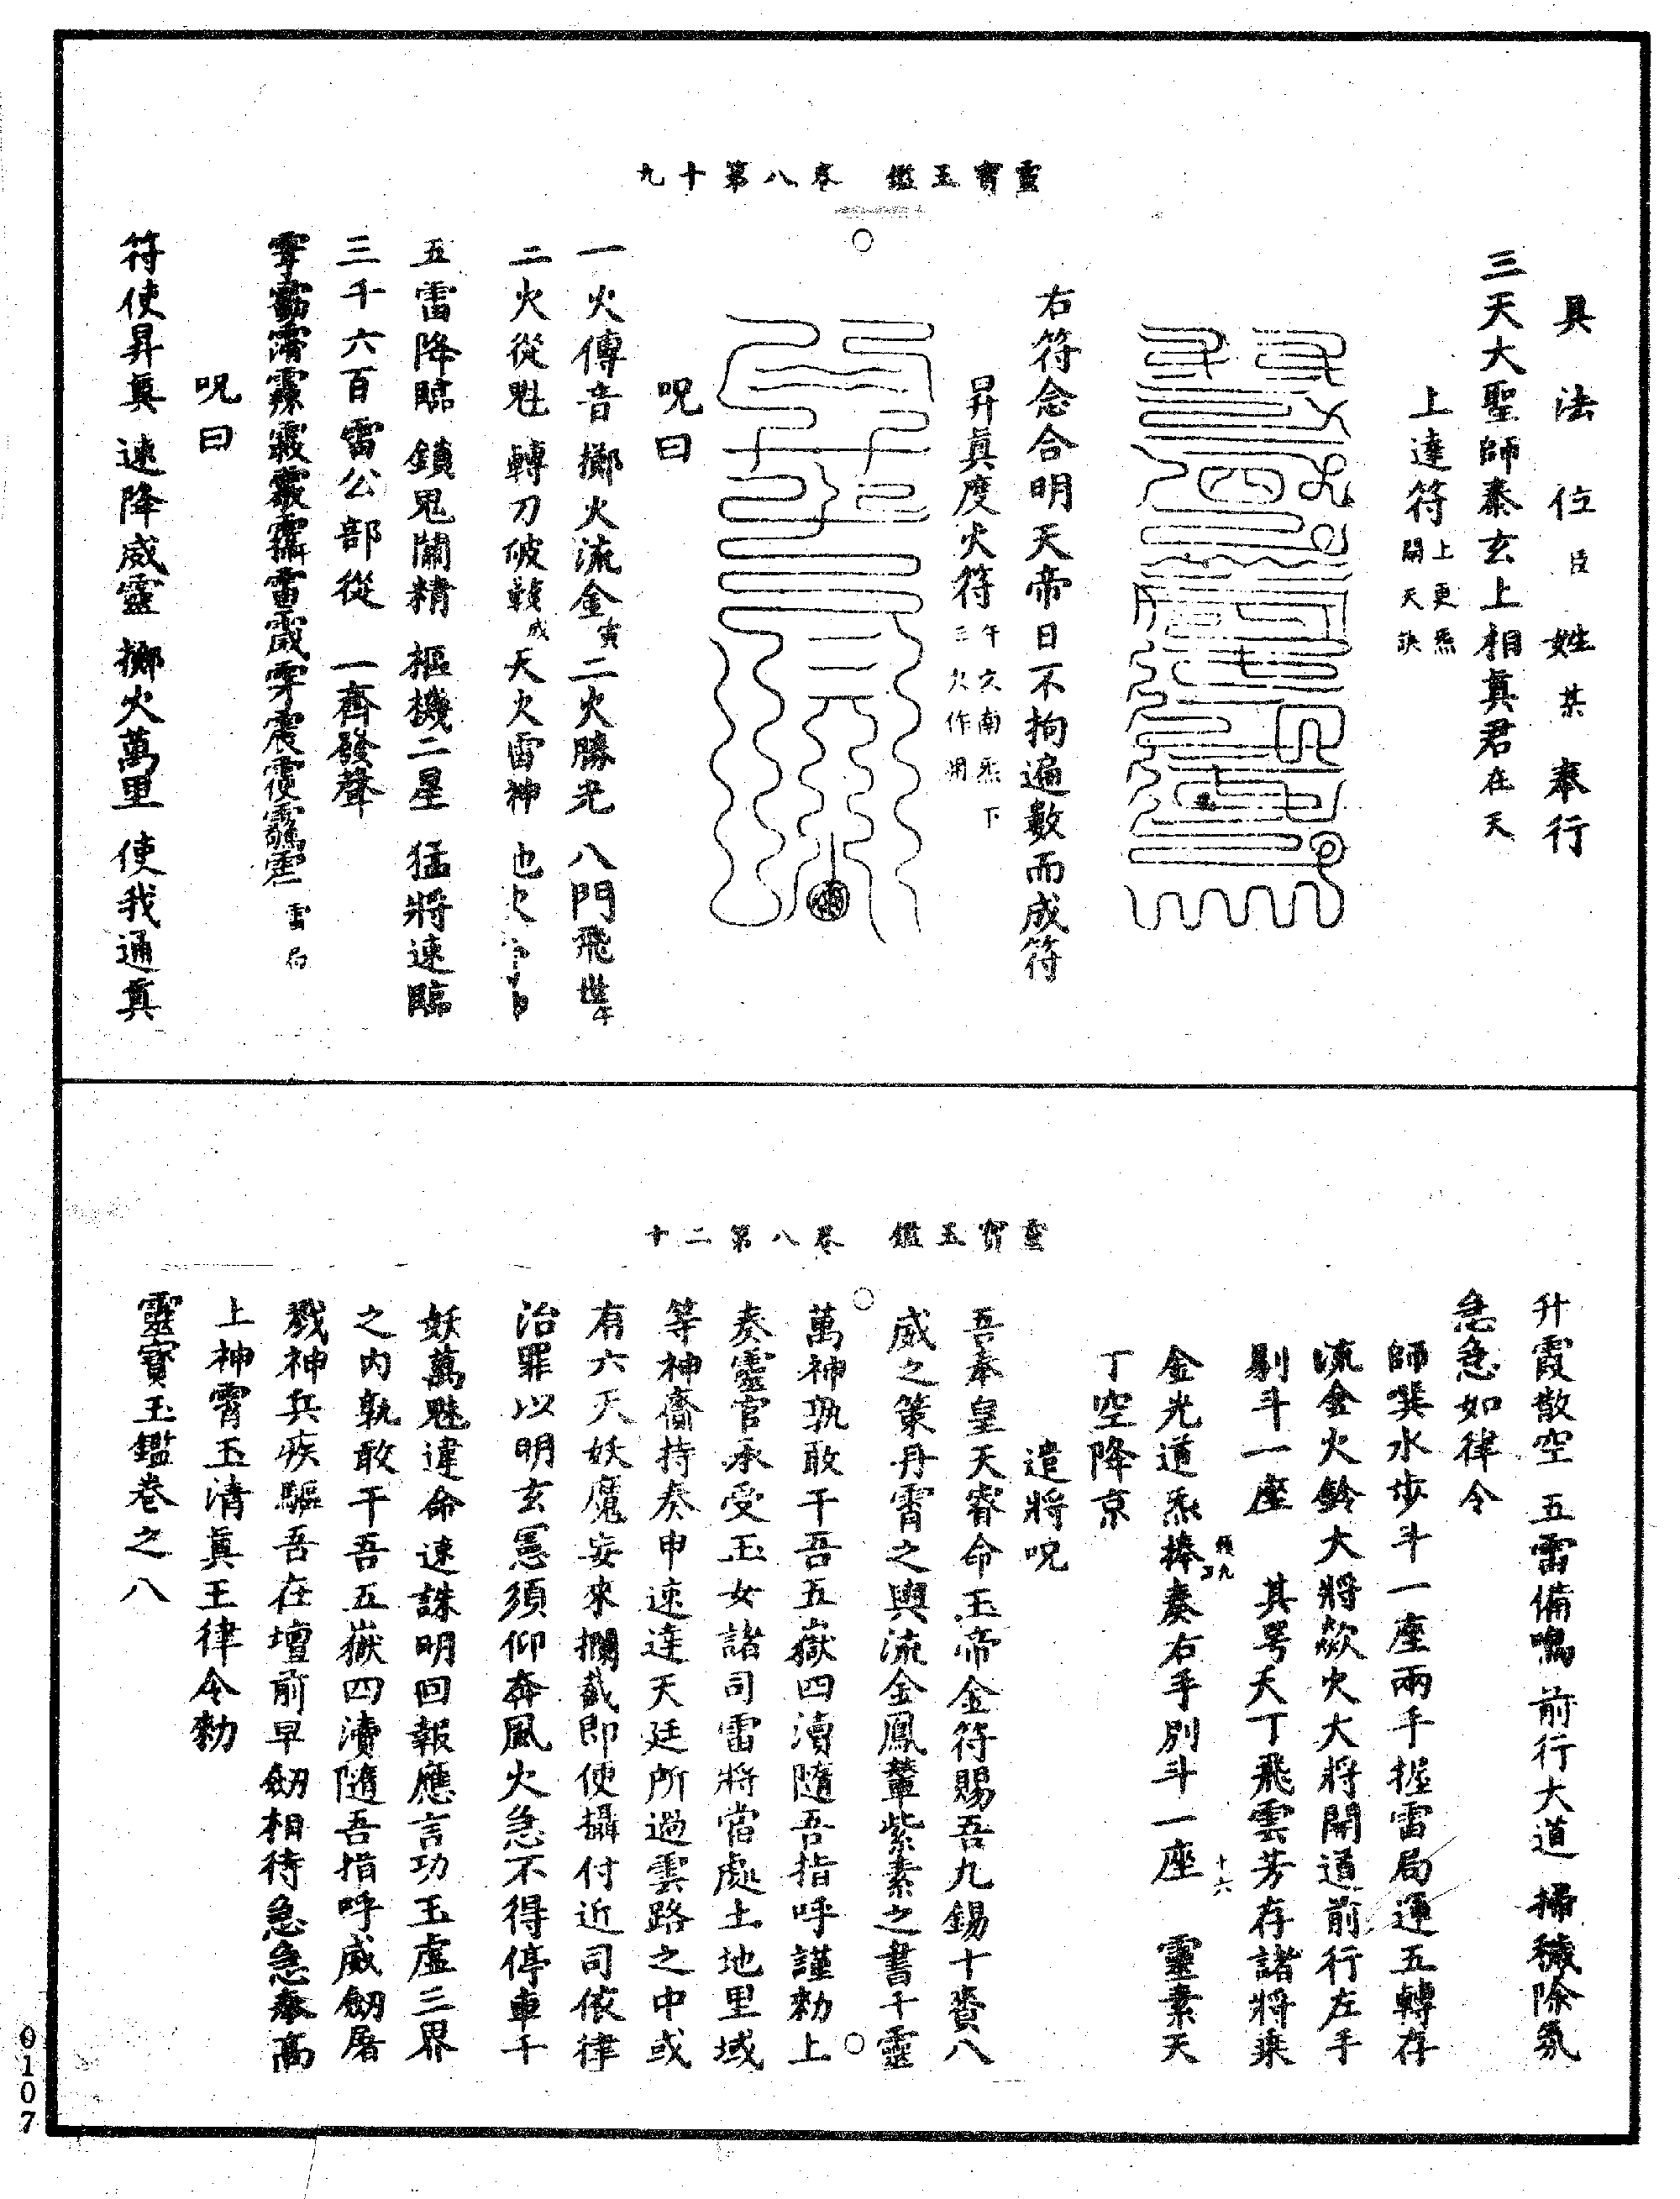 靈寶玉鑑　卷八第十九
具法位臣姓某奉行
三天大聖師泰玄上相真君在天
上達符上更炁開天訣
右符念合明天帝日不拘遍數而成符
昇真度火符午文南炁下三火作用
呪曰
一火傳音　擲火流金寅　二火勝光　八門飛世午
二火從魁　轉刀破戟戌　天火雷神　地火
五雷降臨　鎖鬼關精　樞機二星　猛將速臨
三千六百　雷公部從　一齊發聲
雷局
呪曰
符使昇真　速降威靈　擲火萬里　使我通真
靈寶玉鑑　卷八第二十
升霞散空　五雷備鳴　前行大道　掃穢除氛
急急如律令
師噀水步斗一座兩手握雷局運五轉存
流金火鈴大將歘火大將開道前行左手
剔斗一座　其号天丁飛雲芳存諸將乘
金光道炁捧奏右手別斗一座十六　靈素天
丁空降京
遣將呪
吾奉皇天睿命玉帝金符賜吾九錫十賚八
威之策丹霄之輿流金鳳輦紫素之書千靈
萬神孰敢干吾五嶽四瀆隨吾指呼謹勑上
奏靈官承受玉女諸司雷將當處土地里域
等神齎持奏申速達天廷所過雲路之中或
有六天妖魔妄來攔截即使攝付近司依律
治罪以明玄憲須仰奔風火急不得停車千
妖萬魅違命速誅明回報應言功玉虛三界
之內孰敢干吾五嶽四瀆隨吾指呼威劒屠
戮神兵疾驅吾在壇前早劒相待急急奉高
上神霄玉清真王律令勑
靈寶玉鑑卷之八
0107